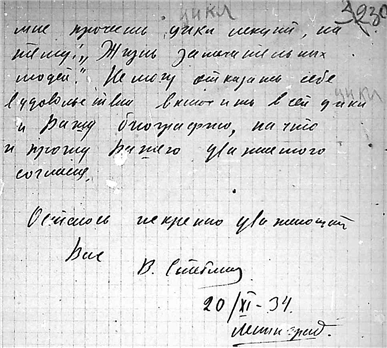 цикл
230
мне прочесть цикл лекций, на
тему: „Жизнь замечательных
людей“. Не могу отказать себе
в удовольствии включить в сей цикл
цикл
и Вашу биографию, на что
и прошу Вашего уважаемого
согласия.
Остаюсь искренно уважающий
Вас
В.
20/XI-34.
Ленинград.